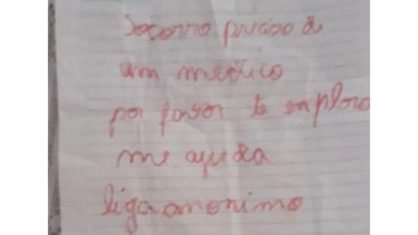 Socorro preciso d
um medico
por favor te suploro
me ajuda
liga anonimo